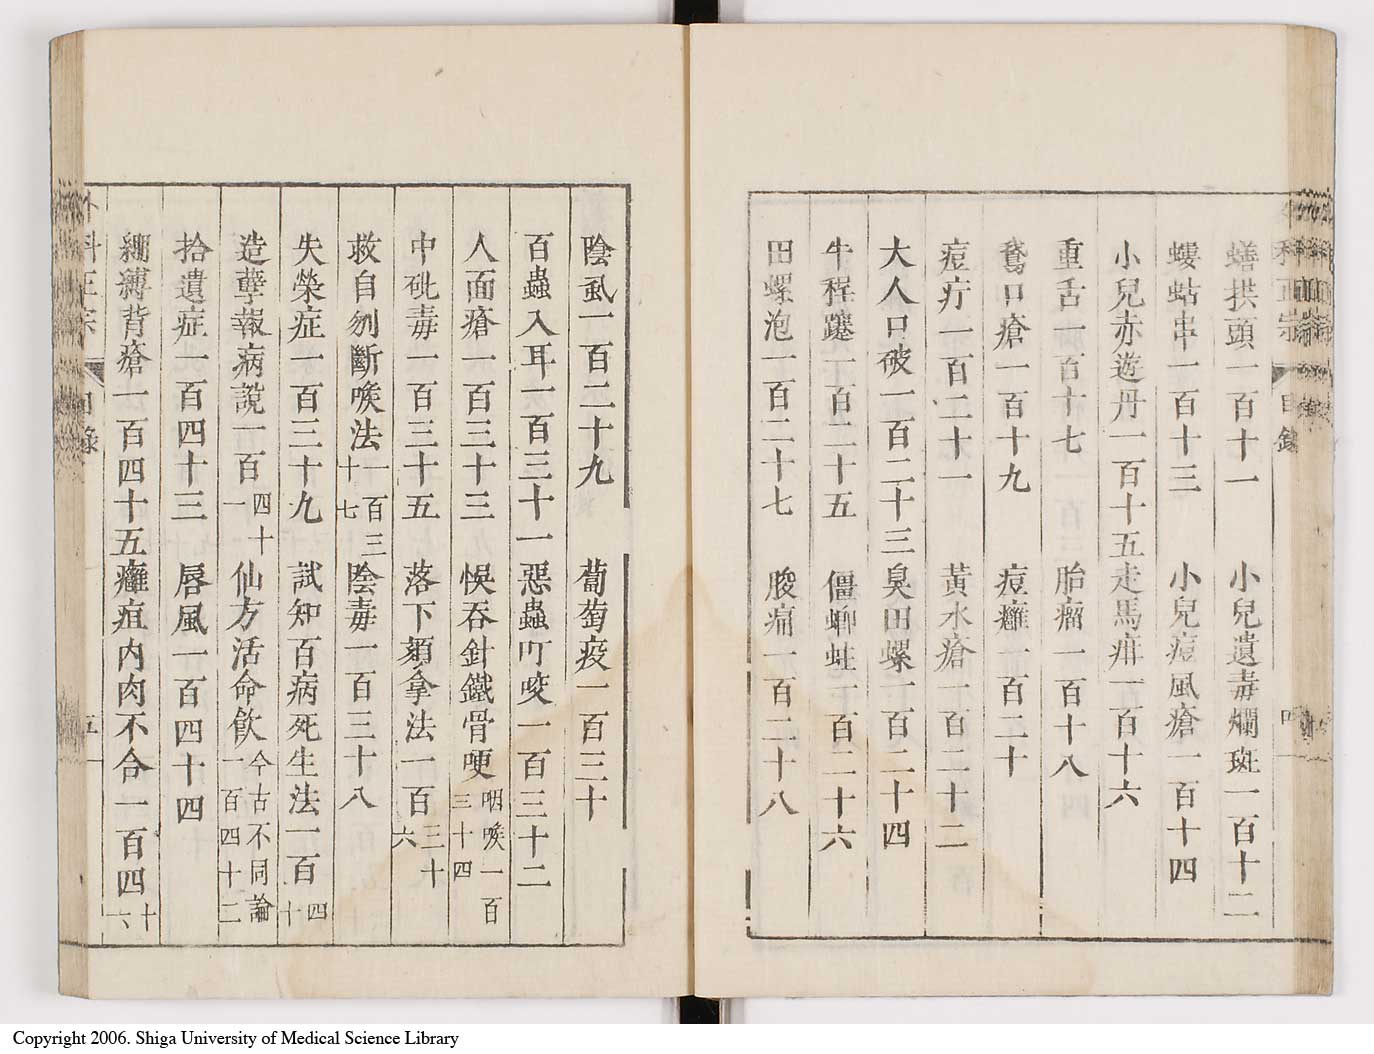 蟮拱頭一百十一 小兒遺毒爛斑一百十二
螻蛄串一百十三 小兒痘風瘡一百十四
小兒赤遊丹一百十五 走馬疳一百十六
重舌一百十七 胎瘤一百十八
鵞口瘡一百十九 痘癰一百二十
痘疔一百二十一 黃水瘡一百二十二
大人口破一百二十三 臭田螺一百二十四
牛程蹇一百二十五 僵螂蛀一百二十六
田螺泡一百二十七 胺痛一百二十八
陰虱一百二十九 葡萄疫一百三十
百蟲入耳一百三十一 惡蟲叮咬一百三十二
人面瘡一百三十三 悞吞針鐵骨哽咽喉一百三十四
中砒毒一百三十五 落下頦拿法一百三十六
救自刎斷喉法一百三十七 陰毒一百三十八
失榮症一百三十九 試知百病死生法一百四十
造孽報病說一百四十一 仙方活命飲今古不同論一百四十二
拾遺症一百四十三 唇風一百四十四
綳縛背瘡一百四十五 癰疽內肉不合一百四十六
外科正宗 目錄 五
Copyright 2006. Shiga University of Medical Science Library